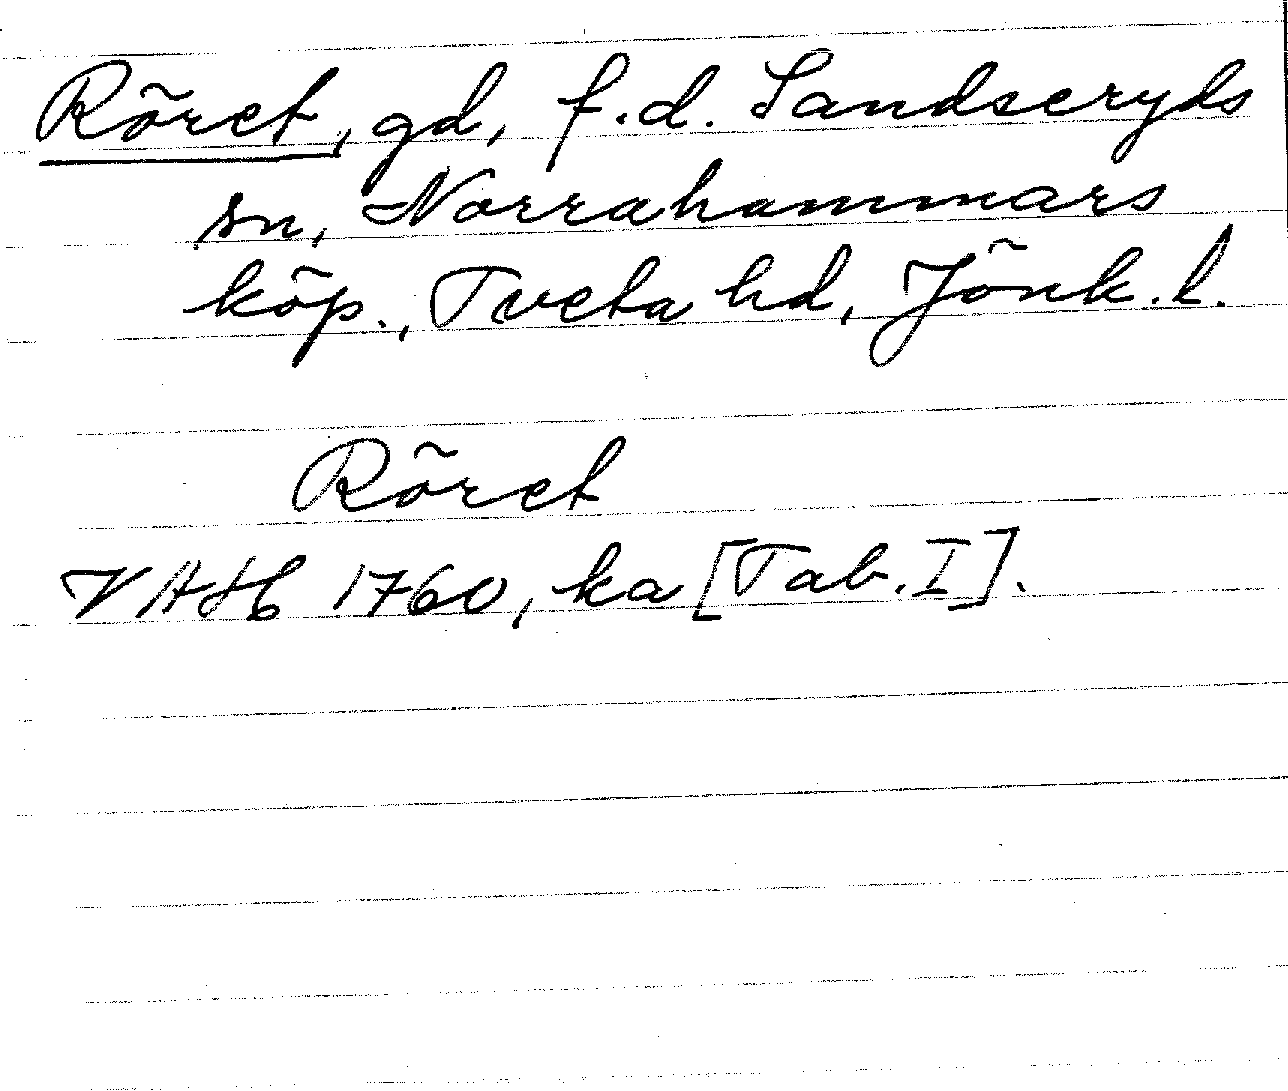 Röret, gd, f.d. Sandseryds
sn, Norrahammars
köp., Tveta hd, Jönk. l.
Röret
VAH 1760, ka [Tab. I].